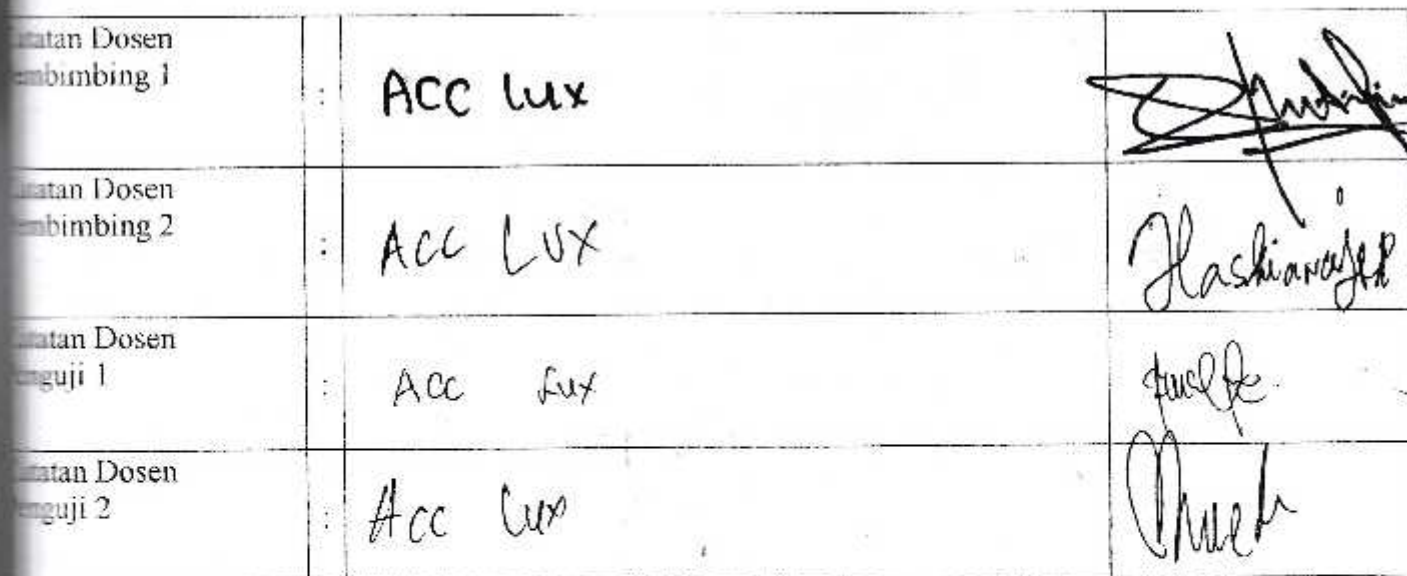 atatan Dosen
embimbing 1
: ACC Lux
atatan Dosen
embimbing 2
: ACC LUX
Hashiana
atatan Dosen
enguji 1
: Acc Lux
atatan Dosen
enguji 2
: Acc Lux